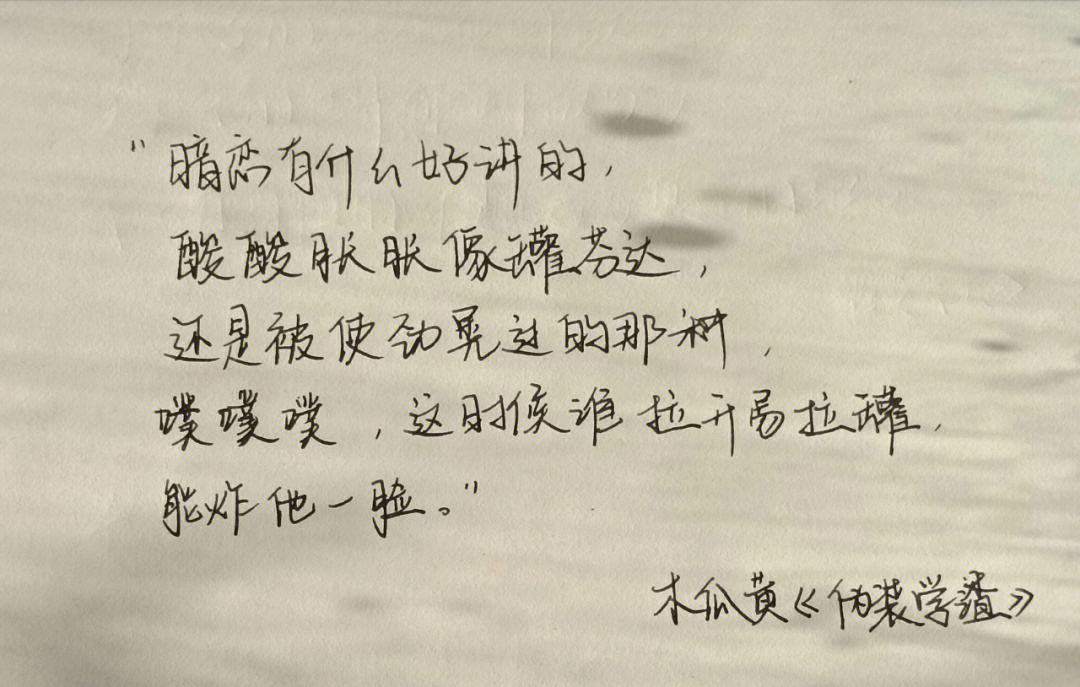 “暗恋有什么好讲的，
酸酸胀胀像罐芬达，
还是被使劲晃过的那种，
噗噗噗，这时候谁拉开易拉罐，
能炸他一脸。”
木瓜黄《伪装学渣》